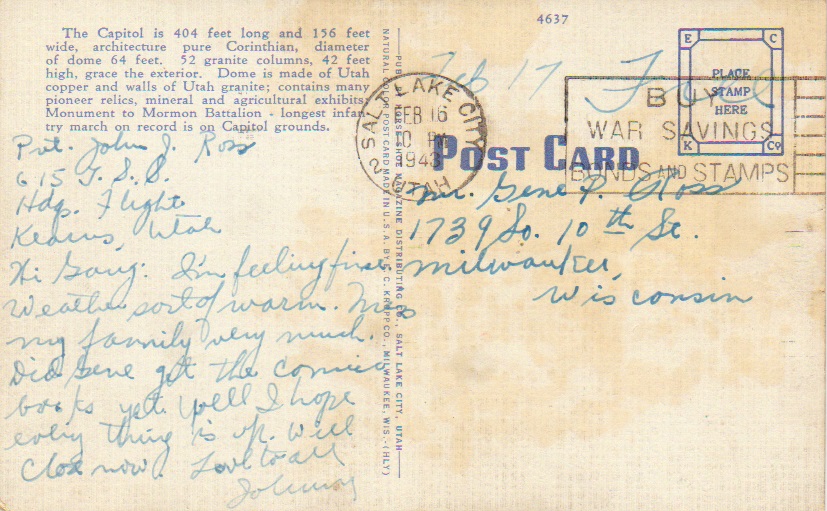 4637
The Capitol is 404 feet long and 156 feet
wide, architecture pure Corinthian, diameter
of dome 64 feet. 52 granite columns, 42 feet
high, grace the exterior. Dome is made of Utah
copper and walls of Utah granite; contains many
pioneer relics, mineral and agricultural exhibits.
Monument to Mormon Battalion - longest infan-
try march on record is on Capitol grounds.
Feb 17 Free
SALT LAKE CITY
FEB 16
10 PM
1943
2 UTAH
BUY
WAR SAVINGS
BONDS AND STAMPS
E C
K Co
PLACE
STAMP
HERE
POST CARD
Pvt. John J. Ross
615 T.S.S.
Hdq. Flight
Kearns, Utah
Hi Gang: I'm feeling fine
Weather sort of warm. Miss
my family very much.
Did Gene get the comics
books yet. Well I hope
every thing is up. Will
close now. Love to all
Johnny
Mr. Gene P. Ross
1739 So. 10th St.
Milwaukee,
Wisconsin
PUB. HORSE SHOE MAGAZINE DISTRIBUTING CO., SALT LAKE CITY, UTAH
NATURAL COLOR POST CARD MADE IN U.S.A. BY E. C. KROPP CO., MILWAUKEE, WIS.-(HLY)